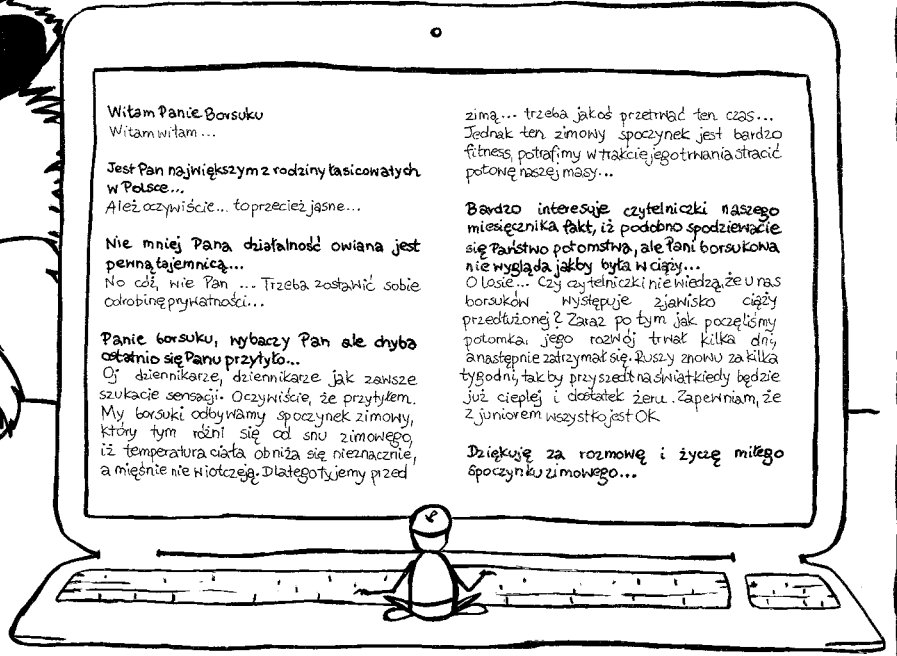 Witam Panie Borsuku
Witam witam...
Jest Pan największym z rodziny łasicowatych
w Polsce...
Ależ oczywiście... to przecież jasne...
Nie mniej Pana działalność owiana jest
pewną tajemnicą...
No cóż, wie Pan ... Trzeba zostawić sobie
odrobinę prywatności...
Panie borsuku, wybaczy Pan ale chyba
ostatnio się Panu przytyło...
Oj dziennikarze, dziennikarze jak zawsze
szukacie sensacji. Oczywiście, że przytyłem.
My borsuki odbywamy spoczynek zimowy,
który tym różni się od snu zimowego,
iż temperatura ciała obniża się nieznacznie,
a mięśnie nie wiotczeją. Dlatego tyjemy przed
zimą... trzeba jakoś przetrwać ten czas...
Jednak ten zimowy spoczynek jest bardzo
fitness, potrafimy w trakcie jego trwania stracić
połowę naszej masy...
Bardzo interesuje czytelniczki naszego
miesięcznika fakt, iż podobno spodziewacie
się Państwo potomstwa, ale Pani borsukowa
nie wygląda jakby była w ciąży...
O losie... Czy czytelniczki nie wiedzą, że u nas
borsuków występuje zjawisko ciąży
przedłużonej? Zaraz po tym jak poczęliśmy
potomka, jego rozwój trwał kilka dni,
a następnie zatrzymał się. Ruszy znowu za kilka
tygodni, tak by przyszedł na świat kiedy będzie
już cieplej i dostatek żeru. Zapewniam, że
z juniorem wszystko jest OK
Dziękuję za rozmowę i życzę miłego
spoczynku zimowego...